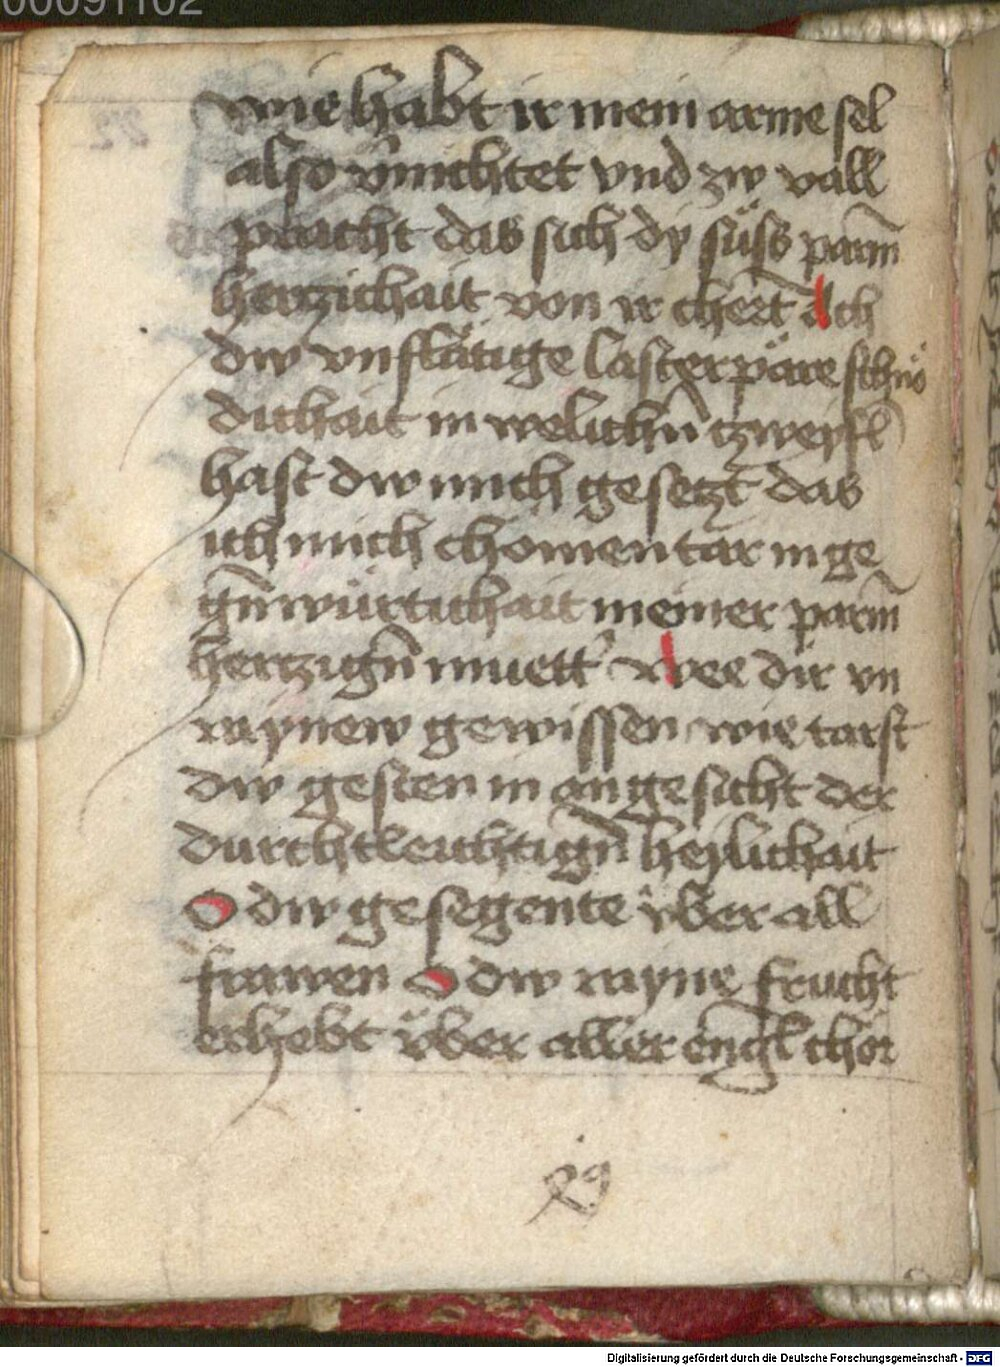 00091102
wie habt ir mein arme sel
also v̄nichtet vnd zw vall
pracht das sich dy süss parm̄
hertzichait von ir chert Ach
dw vnflätige lasterpäre schnö
dichait in welichn̄ tzweyfl
hast dw mich gesetzt das
ich mich chomen tar in ge
gn̄würtichait meiner parm̄
hertzign̄ muett' Wee dir vn
raynew gewissen wie tarst
dw gesten in angesicht der
durchtleuchtign̄ heylichait
O dw gesegente vber all
frawen O dw rayne frucht
erhebt vber aller engl chör
Digitalisierung gefördert durch die Deutsche Forschungsgemeinschaft - DFG